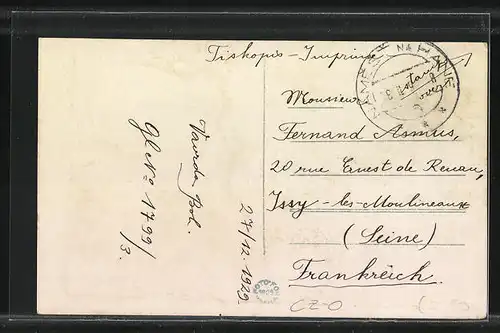 Tiskopis - Imprimé
NÁMĚŠŤ NA HANÉ
Monsieur
Fernand Asmus,
20 rue Ernest de Renan,
Issy-les-Moulineaux
(Seine)
Frankreich.
Vavrda Bol.
Gl No 1799/
/3.
27/12. 1929
CZ-O